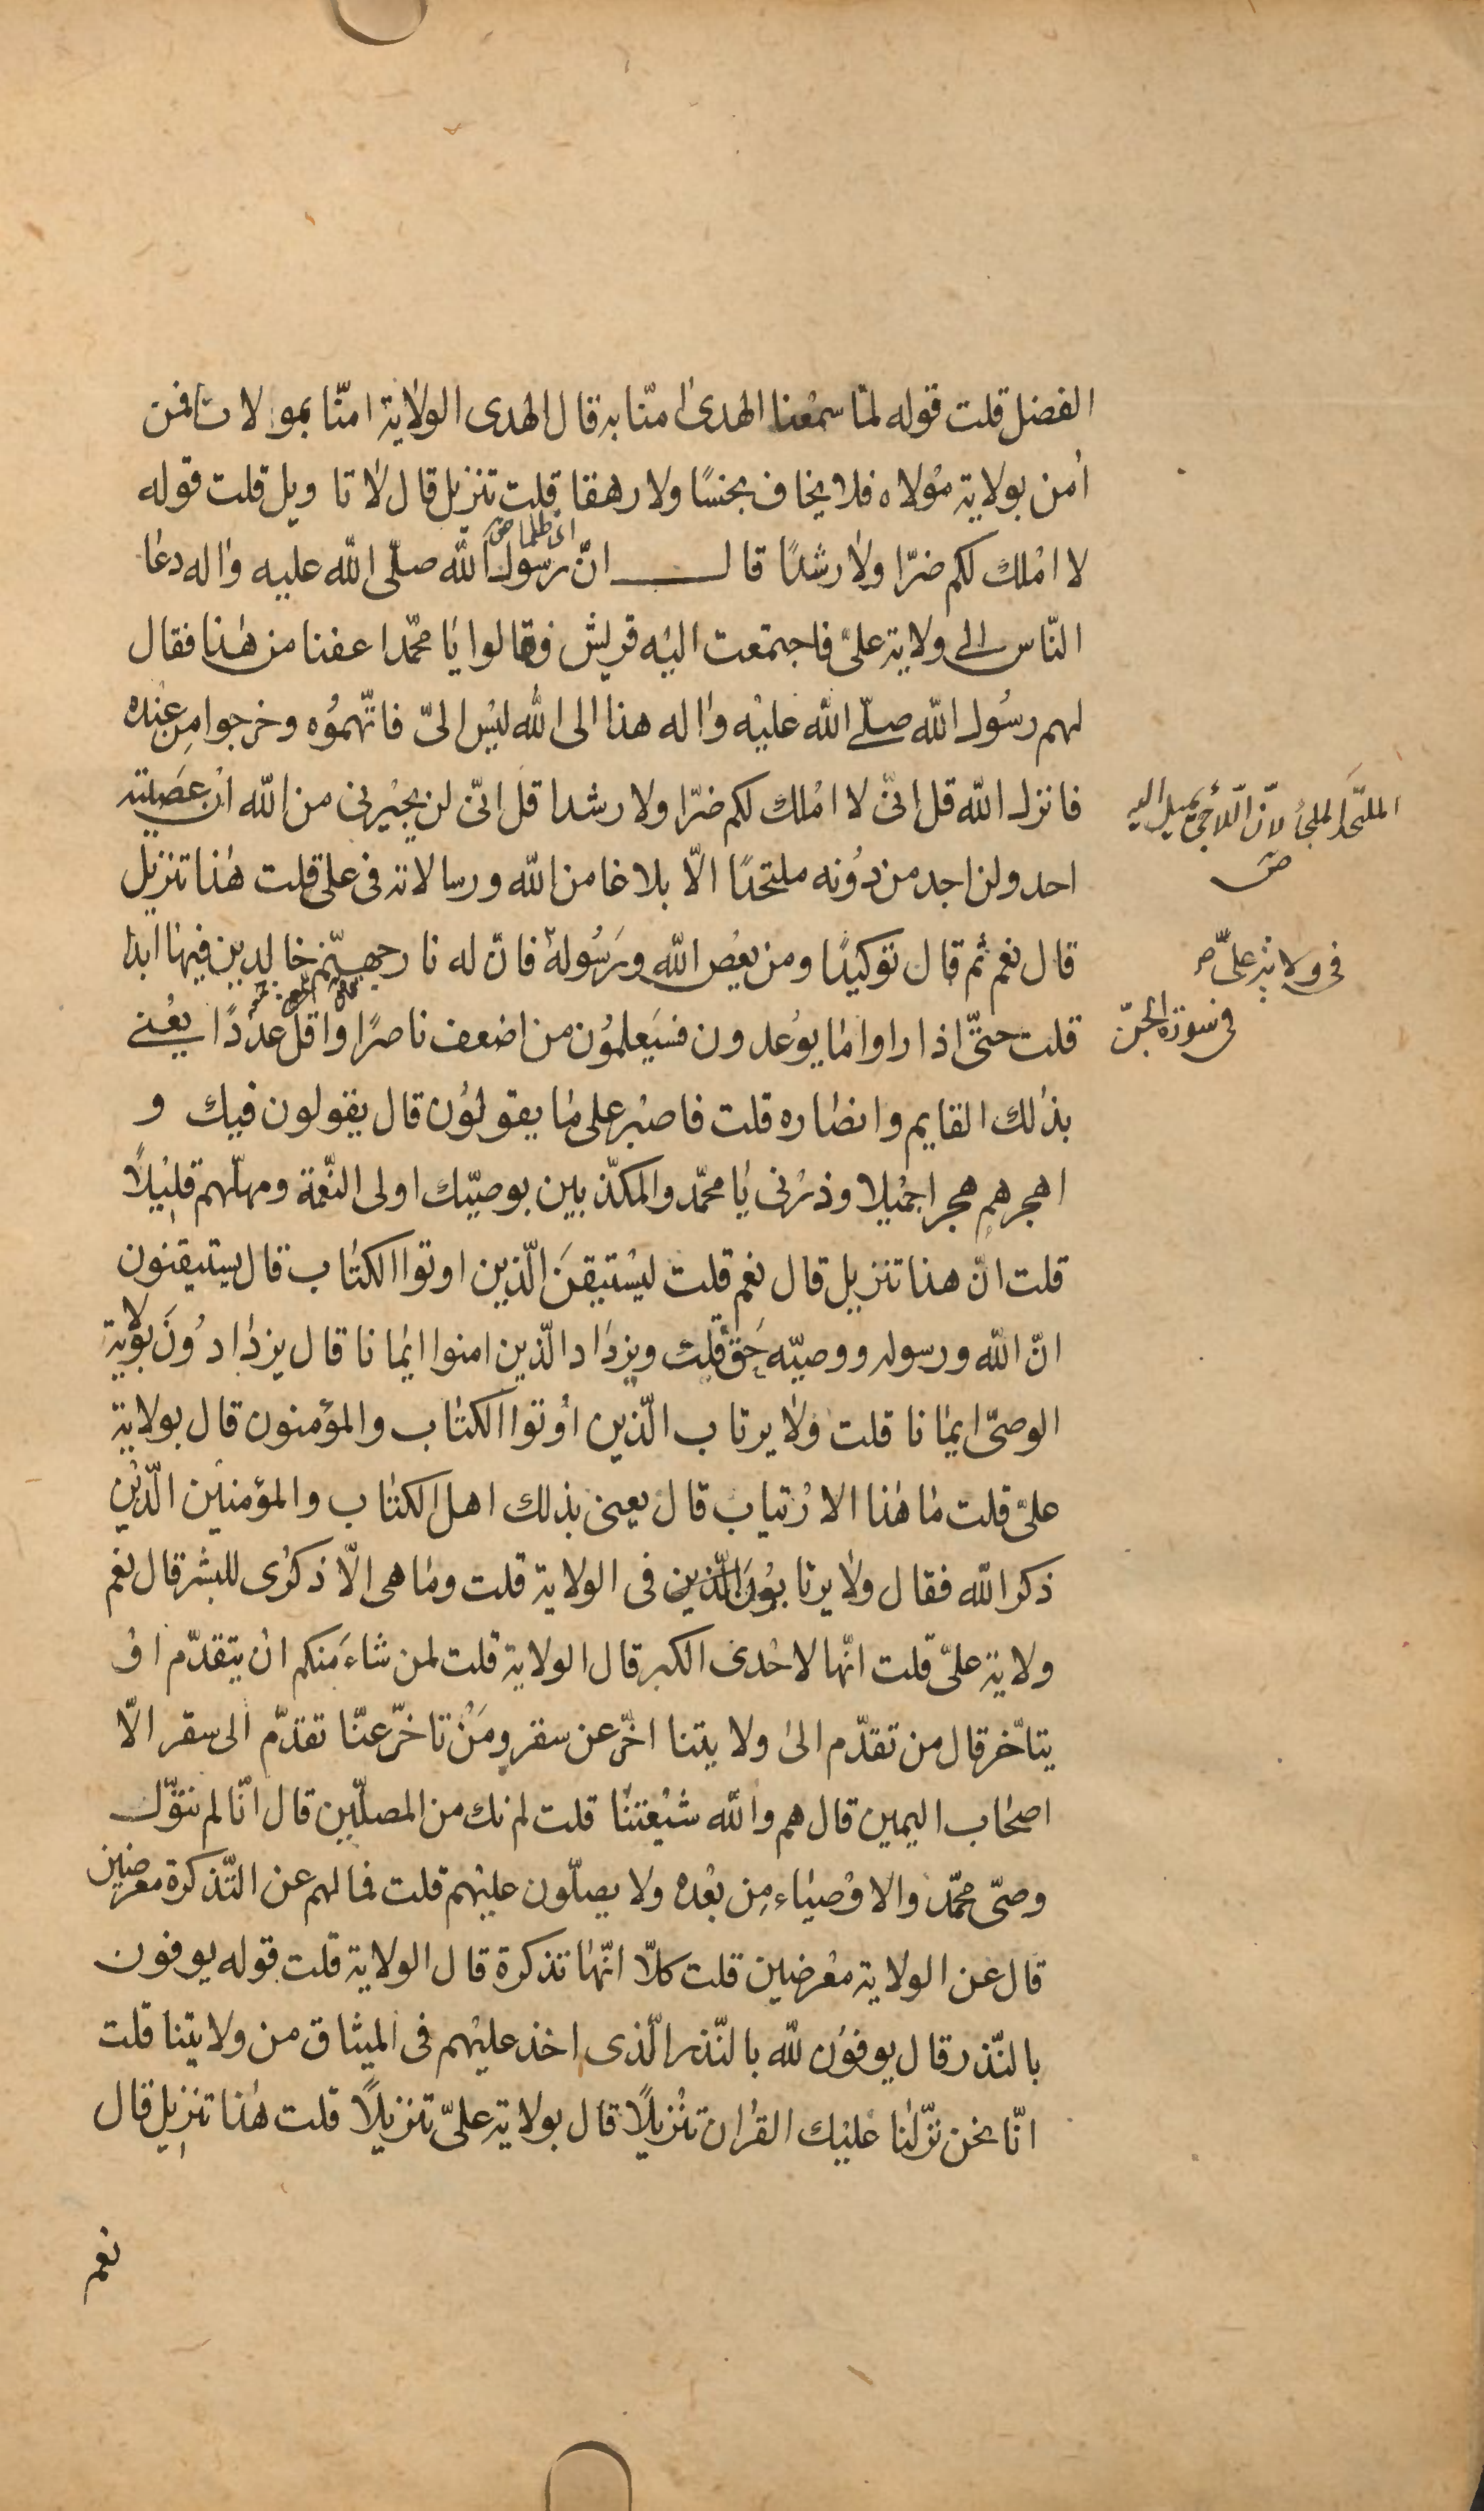 الفضل قلت قوله لمّا سمعنا الهدى امنّا به قال الهدى الولاية امنّا بمولانا فمن
امن بولاية مولاه فلا يخاف بخسًا ولا رهقا قلت تنزيل قال لا تاويل قلت قوله
لا املك لكم ضرّا ولا رشدًا قال انّ رسول الله صلّى الله عليه واله دعا
النّاس الى ولاية علىّ فاجتمعت اليه قريش فقالوا يا محمّد اعفنا من هذا فقال
لهم رسول الله صلّى الله عليه واله هذا الى الله ليس الىّ فاتّهموه وخرجوا من عنده
فانزل الله قل انّى لا املك لكم ضرّا ولا رشدا قل انّى لن يجيرنى من الله ان عصيته
احد ولن اجد من دونه ملتحدًا الّا بلاغا من الله ورسالاته فى على قلت هذا تنزيل
قال نعم ثم قال توكيدًا ومن يعص الله ورسوله فانّ له نار جهنّم خالدين فيها ابدا
قلت حتّى اذا راوا ما يوعدون فسيعلمون من اضعف ناصرًا واقل عددًا يعنى
بذلك القايم وانصاره قلت فاصبر على ما يقولون قال يقولون فيك و
اهجرهم هجرا جميلا وذرنى يا محمّد والمكذّبين بوصيّك اولى النّعمة ومهّلهم قليلًا
قلت انّ هذا تنزيل قال نعم قلت ليستيقن الّذين اوتوا الكتاب قال يستيقنون
انّ الله ورسوله ووصيّه حقّ قلت ويزداد الّذين امنوا ايمانا قال يزدادون بولاية
الوصىّ ايمانا قلت ولا يرتاب الّذين اوتوا الكتاب والمؤمنون قال بولاية
علىّ قلت ما هذا الارتياب قال يعنى بذلك اهل الكتاب والمؤمنين الّذين
ذكر الله فقال ولا يرتابون الّذين فى الولاية قلت وما هى الّا ذكرى للبشر قال نعم
ولاية علىّ قلت انّها لاحدى الكبر قال الولاية قلت لمن شاء منكم ان يتقدّم او
يتاخّر قال من تقدّم الى ولايتنا اخّر عن سقر ومن تاخّر عنّا تقدّم الى سقر الّا
اصحاب اليمين قال هم والله شيعتنا قلت لم نك من المصلّين قال انّا لم نتولّ
وصىّ محمّد والاوصياء من بعده ولا يصلّون عليهم قلت فما لهم عن التّذكرة معرضين
قال عن الولاية معرضين قلت كلّا انّها تذكرة قال الولاية قلت قوله يوفون
بالنّذر قال يوفون لله بالنّذر الّذى اخذ عليهم فى الميثاق من ولايتنا قلت
انّا نحن نزّلنا عليك القران تنزيلًا قال بولاية علىّ تنزيلًا قلت هذا تنزيل قال
نعم
الملتحد الملجأ لانّ اللاجئ يميل اليه
فى ولاية علىّ
فى سورة الجنّ
اى ظلما